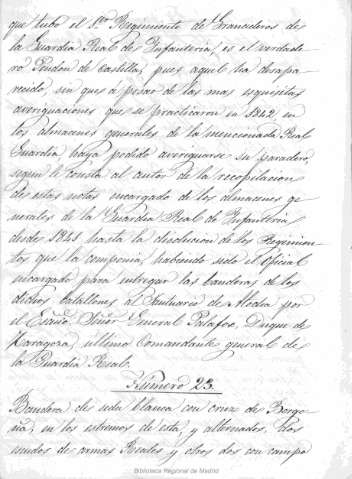 que tubo el 1.er Regimiento de Granaderos de
la Guardia Real de Infanteria, es el verdade
ro Pendon de Castilla, pues aquel ha desapa
recido, sin que a pesar de las mas esquisitas
averiguaciones que se practicaron en 1842, en
los almacenes generales de la mencionada Real
Guardia, haya podido averiguarse su paradero,
segun le consta al autor de la recopilacion
de estas notas encargado de los almacenes ge
nerales de la Guardia Real de Infanteria
desde 1841 hasta la disolucion de los Regimien
tos que la componia, habiendo sido el Oficial
encargado para entregar las banderas de los
dichos batallones al Santuario de Atocha por
el Escmo. Señor General Palafox, Duque de
Zaragoza, ultimo Comandante general de
la Guardia Real.
Numero 23.
Bandera de seda blanca con cruz de Borgo
ña, en los estremos de esta, y alternados, dos
escudos de armas Reales y otros dos con campo
Biblioteca Regional de Madrid